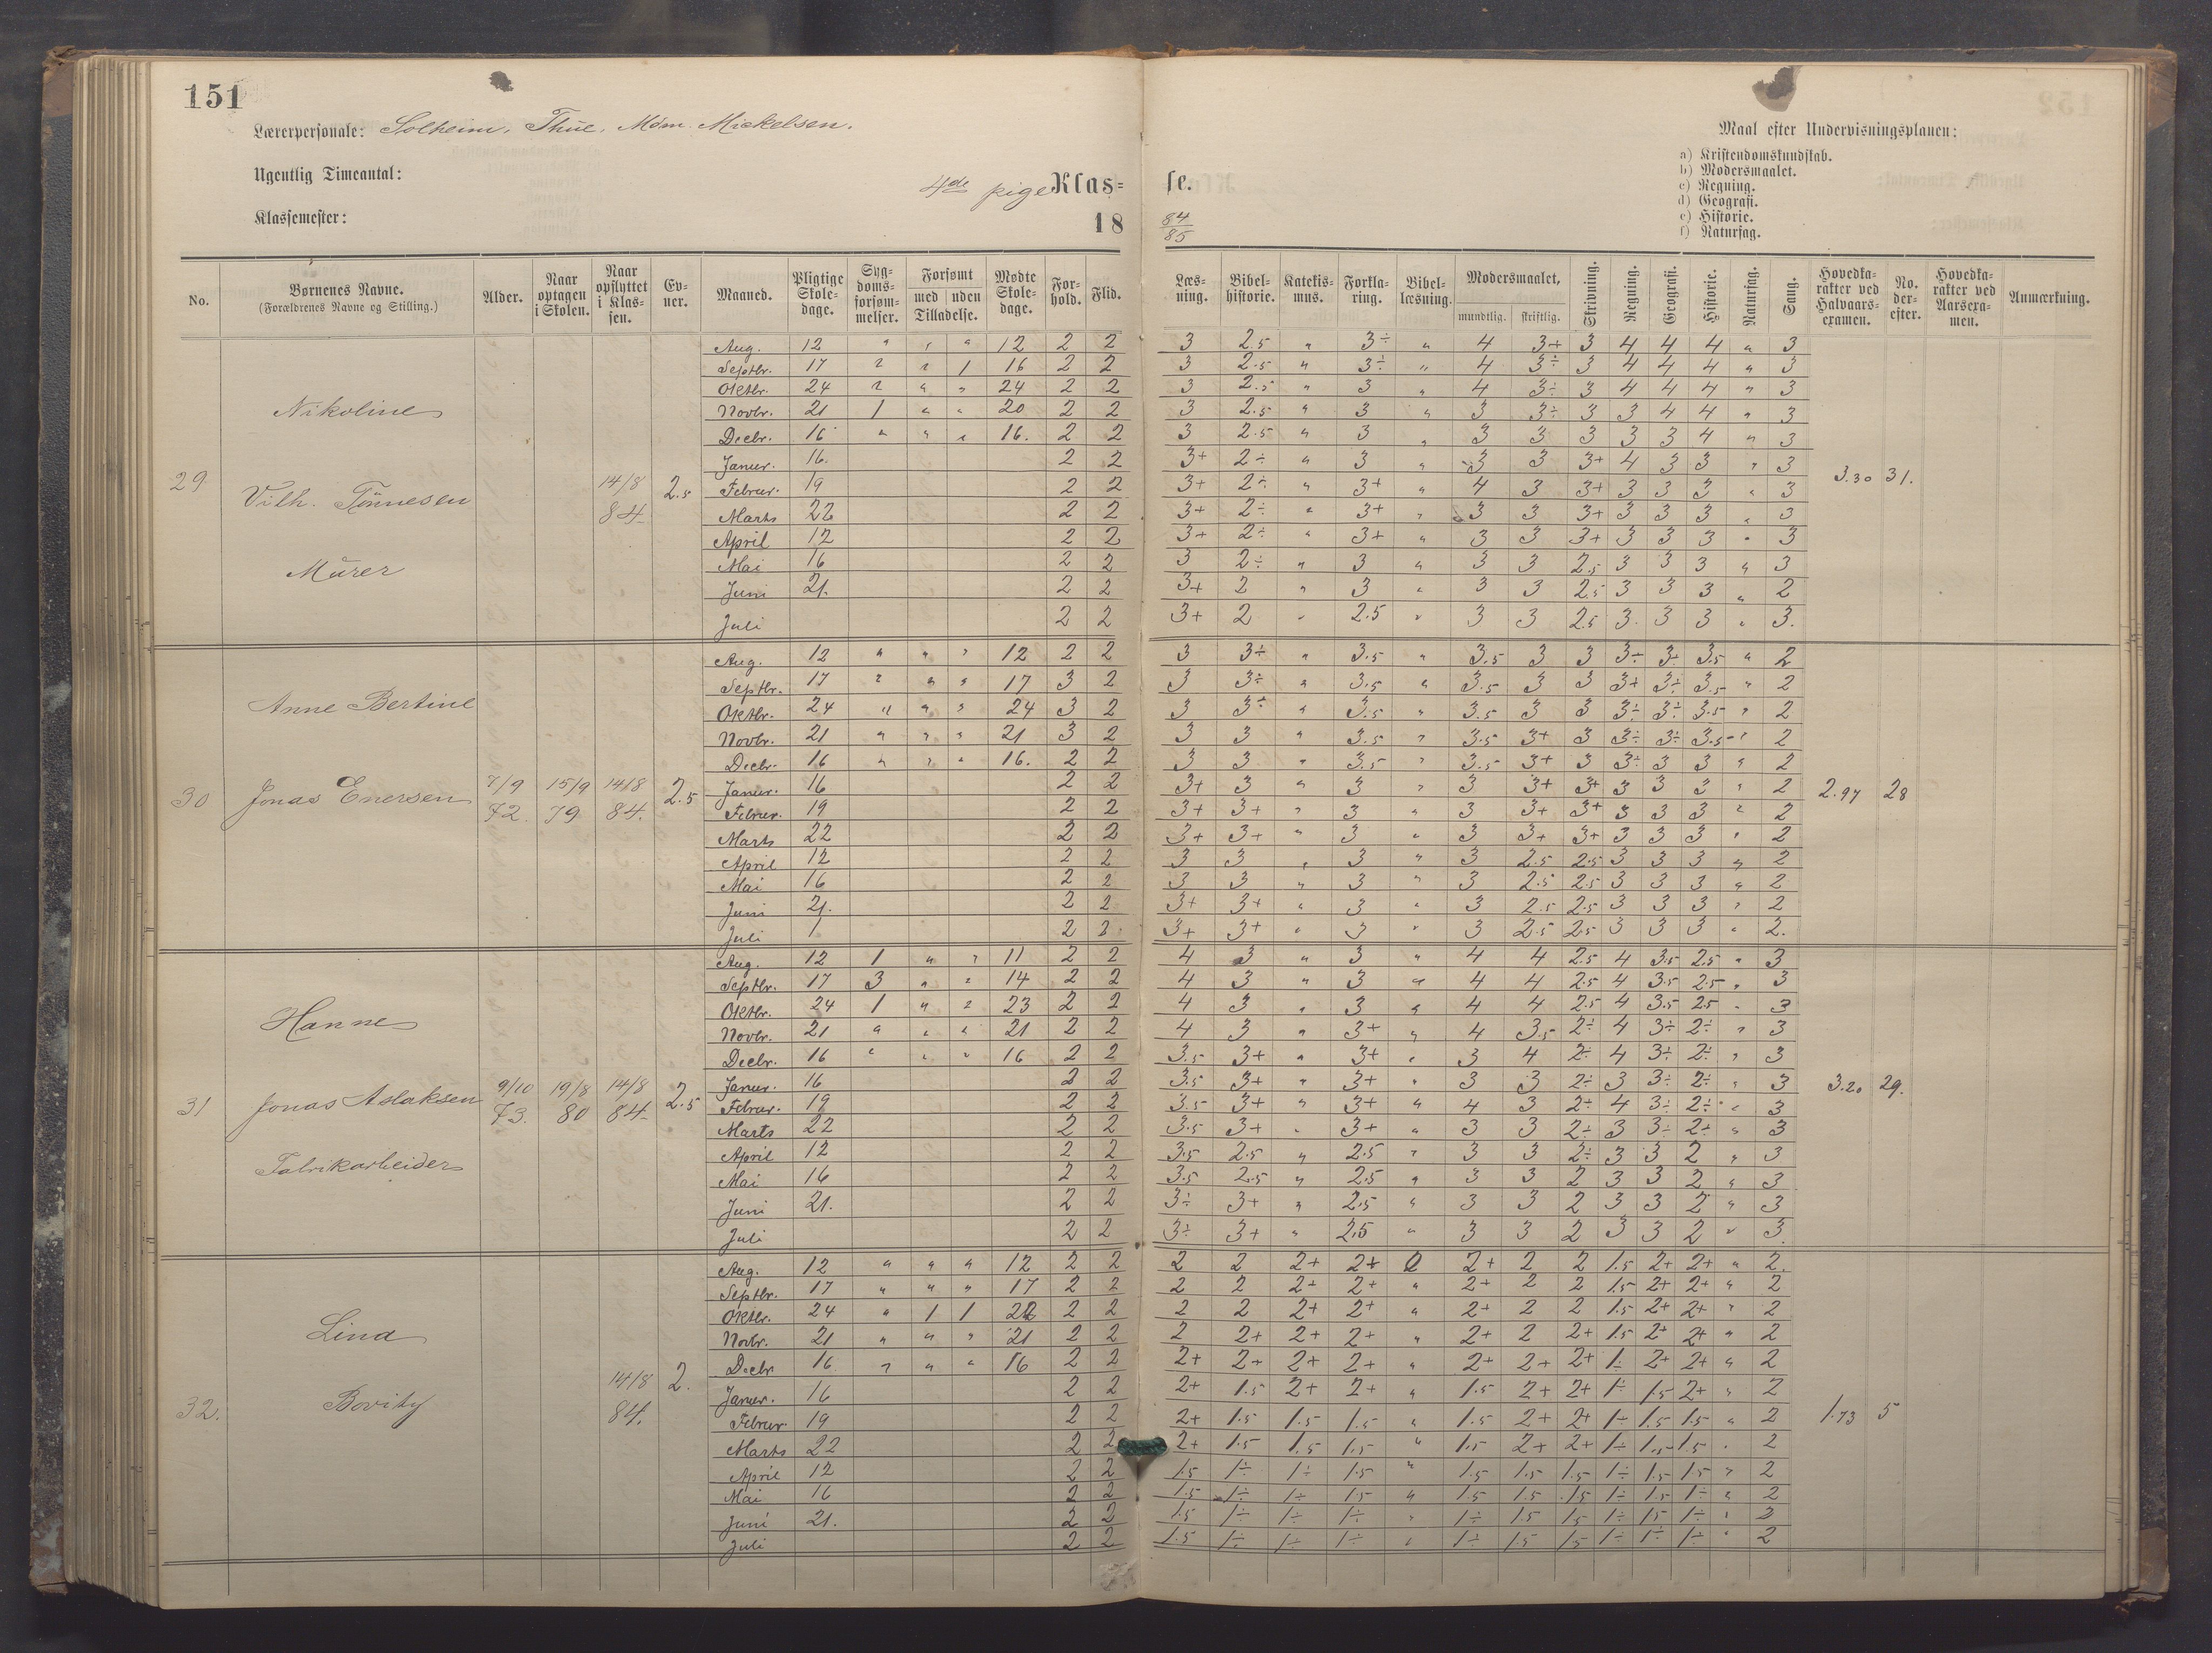 151
Lærerpersonale: Solheim, Thue, Mdm. Mickelsen.
Ugentlig Timeantal:
4de pige Klas= se.
Klassemester:
18 84/85
Maal efter Undervisningsplanen:
a) Kristendomskundskab.
b) Modersmaalet.
c) Regning.
d) Geografi.
e) Historie.
f) Naturfag.
No. | Børnenes Navne. (Forældrenes Navne og Stilling.) | Alder. | Naar optagen i Skolen. | Naar opflyttet i Klas=sen. | Ev=ner. | Maaned. | Pligtige Skole=dage. | Syg=doms=forsøm=melser. | Forsømt med uden Tilladelse. | Mødte Skole=dage. | For=hold. | Flid. | Læs=ning. | Bibel=historie. | Katekis=mus. | Forkla=ring. | Bibel=læsning. | Modersmaalet, mundtlig. skriftlig. | Skrivning. | Regning. | Geografi. | Historie. | Naturfag. | Sang. | Hovedka=rakter ved Halvaars=examen. | No. der=efter. | Hovedka=rakter ved Aarsexa=men. | Anmærkning.
29 Nikoline
Vilh. Tönnesen
Murer
14/8 84. 2.5
Aug. 12 " " " 12 2 2 3 2.5 " 3÷ " 4 3+ 3 4 4 4 " 3
Septbr. 17 " " 1 16 2 2 3 2.5 " 3÷ " 4 3÷ 3 4 4 4 " 3
Oktbr. 24 " " " 24 2 2 3 2.5 " 3 " 4 3÷ 3 4 4 4 " 3
Novbr. 21 1 " " 20 2 2 3 2.5 " 3 " 3 3÷ 3 3 4 4 " 3
Decbr. 16 " " " 16. 2 2 3 2.5 " 3 " 3 3 3 3 3 4 " 3
Januer. 16. 2 2 3+ 2÷ " 3 " 3 3 3+ 4 3 3 " 3 3.30 31.
Februer. 19 2 2 3+ 2÷ " 3+ " 4 3 3+ 3 3 3 " 3
Marts 22 2 2 3+ 2÷ " 3+ " 3 3 3+ 3 3 3 " 3
April 12 2 2 3+ 2÷ " 3+ " 3 3 3+ 3 3 3 " 3
Mai 16 2 2 3 2÷ " 3 " 3 3 2.5 3 3 3 " 3
Juni 21. 2 2 3+ 2 " 3 " 3 3 2.5 3 3 3 " 2
Juli 2 2 3+ 2 " 2.5 " 3 3 2.5 3. 3 3 " 3.
30 Anne Bertine
Jonas Enersen
7/9 72. 15/9 79 14/8 84. 2.5
Aug. 12 " " " 12 2 2 3 3÷ " 3.5 " 3.5 3 3 3÷ 3÷ 3.5 " 2
Septbr. 17 " " " 17 3 2 3 3÷ " 3.5 " 3.5 3 3 3+ 3÷ 3.5 " 2
Oktbr. 24 " " " 24 3 2 3 3÷ " 3.5 " 3.5 3 3 3÷ 3÷ 3.5 " 2
Novbr. 21 " " " 21 3 2 3 3 " 3.5 " 3.5 3+ 3 3÷ 3÷ 3.5 " 2
Decbr. 16 " " " 16. 2 2 3 3 " 3.5 " 3.5 3+ 3 3÷ 3 3 " 2
Januer. 16 2 2 3+ 3 " 3 " 3 3+ 3+ 3 3 3 " 2 2.97 28
Februer. 19 2 2 3+ 3+ " 3 " 3 3+ 3+ 3 3 3 " 2
Marts 22 2 2 3+ 3+ " 3 " 3 3+ 3+ 3 3 3 " 2
April 12 2 2 3 3 " 3 " 3 2.5 2.5 3 3 3 " 2
Mai 16 2 2 3 3 " 3 " 3 2.5 2.5 3 3 3 " 2
Juni 21. 2 2 3+ 3+ " 3 " 3 2.5 2.5 3 3 3 " 2
Juli 2 2 3+ 3+ " 3 " 3 2.5 2.5 3 3 3 " 2.
31 Hanne
Jonas Aslaksen
Fabrikarbeider
9/10 73. 19/8 80 14/8 84. 2.5
Aug. 12 1 " " 11 2 2 4 3 " 3 " 4 4 2.5 4 3.5 2.5 " 3
Septbr. 17 3 " " 14 2 2 4 3 " 3 " 4 4 2.5 4 3.5 2.5 " 3
Oktbr. 24 1 " " 23 2 2 4 3 " 3 " 4 4 2.5 4 3.5 2.5 " 3
Novbr. 21 " " " 21 2 2 4 3 " 3+ " 4 3.5 2÷ 4 3÷ 2÷ " 3
Decbr. 16 " " " 16 2 2 3.5 3+ " 3+ " 3 4 2÷ 4 3÷ 2÷ " 3
Januer. 16 2 2 3.5 3+ " 3+ " 3 3 2÷ 3 3÷ 2÷ " 3 3.20 29.
Februer. 19 2 2 3.5 3+ " 3+ " 4 3 2÷ 4 3÷ 2÷ " 3
Marts 22 2 2 3.5 3+ " 3+ " 3 3 2÷ 3 3÷ 2÷ " 3
April 12 2 2 3.5 2.5 " 2.5 " 3 3 2÷ 3 3 2 " 3
Mai 16 2 2 3.5 2.5 " 2.5 " 3 3 2 3 3 2 " 3
Juni 21. 2 2 3÷ 3+ " 2.5 " 3 3 2 3 3 2 " 3
Juli 2 2 3÷ 3+ " 2.5 " 3 3 2 3 3 2 " 3.
32. Lina
Bovitz
14/8 84. 2.
Aug. 12 " " " 12 2 2 2 2 2+ 2+ 2 2+ 2 2 1.5 2+ 2+ " 2.
Septbr. 17 " " " 17 2 2 2 2 2+ 2+ " 2+ 2 2 1.5 2+ 2+ " 2
Oktbr. 24 " 1 1 22 2 2 2 2 2+ 2+ " 2+ 2 2 1.5 2+ 2+ " 2
Novbr. 21 " " " 21 2 2 2 2+ 2+ 2+ " 2+ 2 2+ 1.5 2+ 2+ " 2
Decbr 16 " " " 16 2 2 2+ 2+ 2+ 2+ " 2+ 2+ 2+ 1÷ 2+ 2+ " 2
Januer. 16 2 2 2+ 1.5 2+ 2+ " 1.5 2+ 2+ 1÷ 1.5 2+ " 2
Februer 19 2 2 2+ 1.5 1.5 1.5 " 1.5 2+ 2+ 1÷ 1.5 1.5 " 2 1.73 5
Marts 22 2 2 2+ 1.5 1.5 1.5 " 1.5 2+ 2+ 1÷ 1.5 1.5 " 2
April 12 2 2 1.5 1÷ 1÷ 1.5 " 1.5 1.5 1.5 1÷ 1.5 1.5 " 2
Mai 16 2 2 1.5 1÷ 1÷ 1.5 " 1.5 1.5 1.5 1÷ 1.5 1÷ " 2
Juni 21. 2 2 1.5 1÷ 1÷ 1÷ " 1÷ 1.5 1.5 1÷ 1.5 1÷ " 2
Juli 2 2 1.5 1÷ 1÷ 1÷ " 1÷ 1.5 1.5 1÷ 1÷ 1÷ " 2